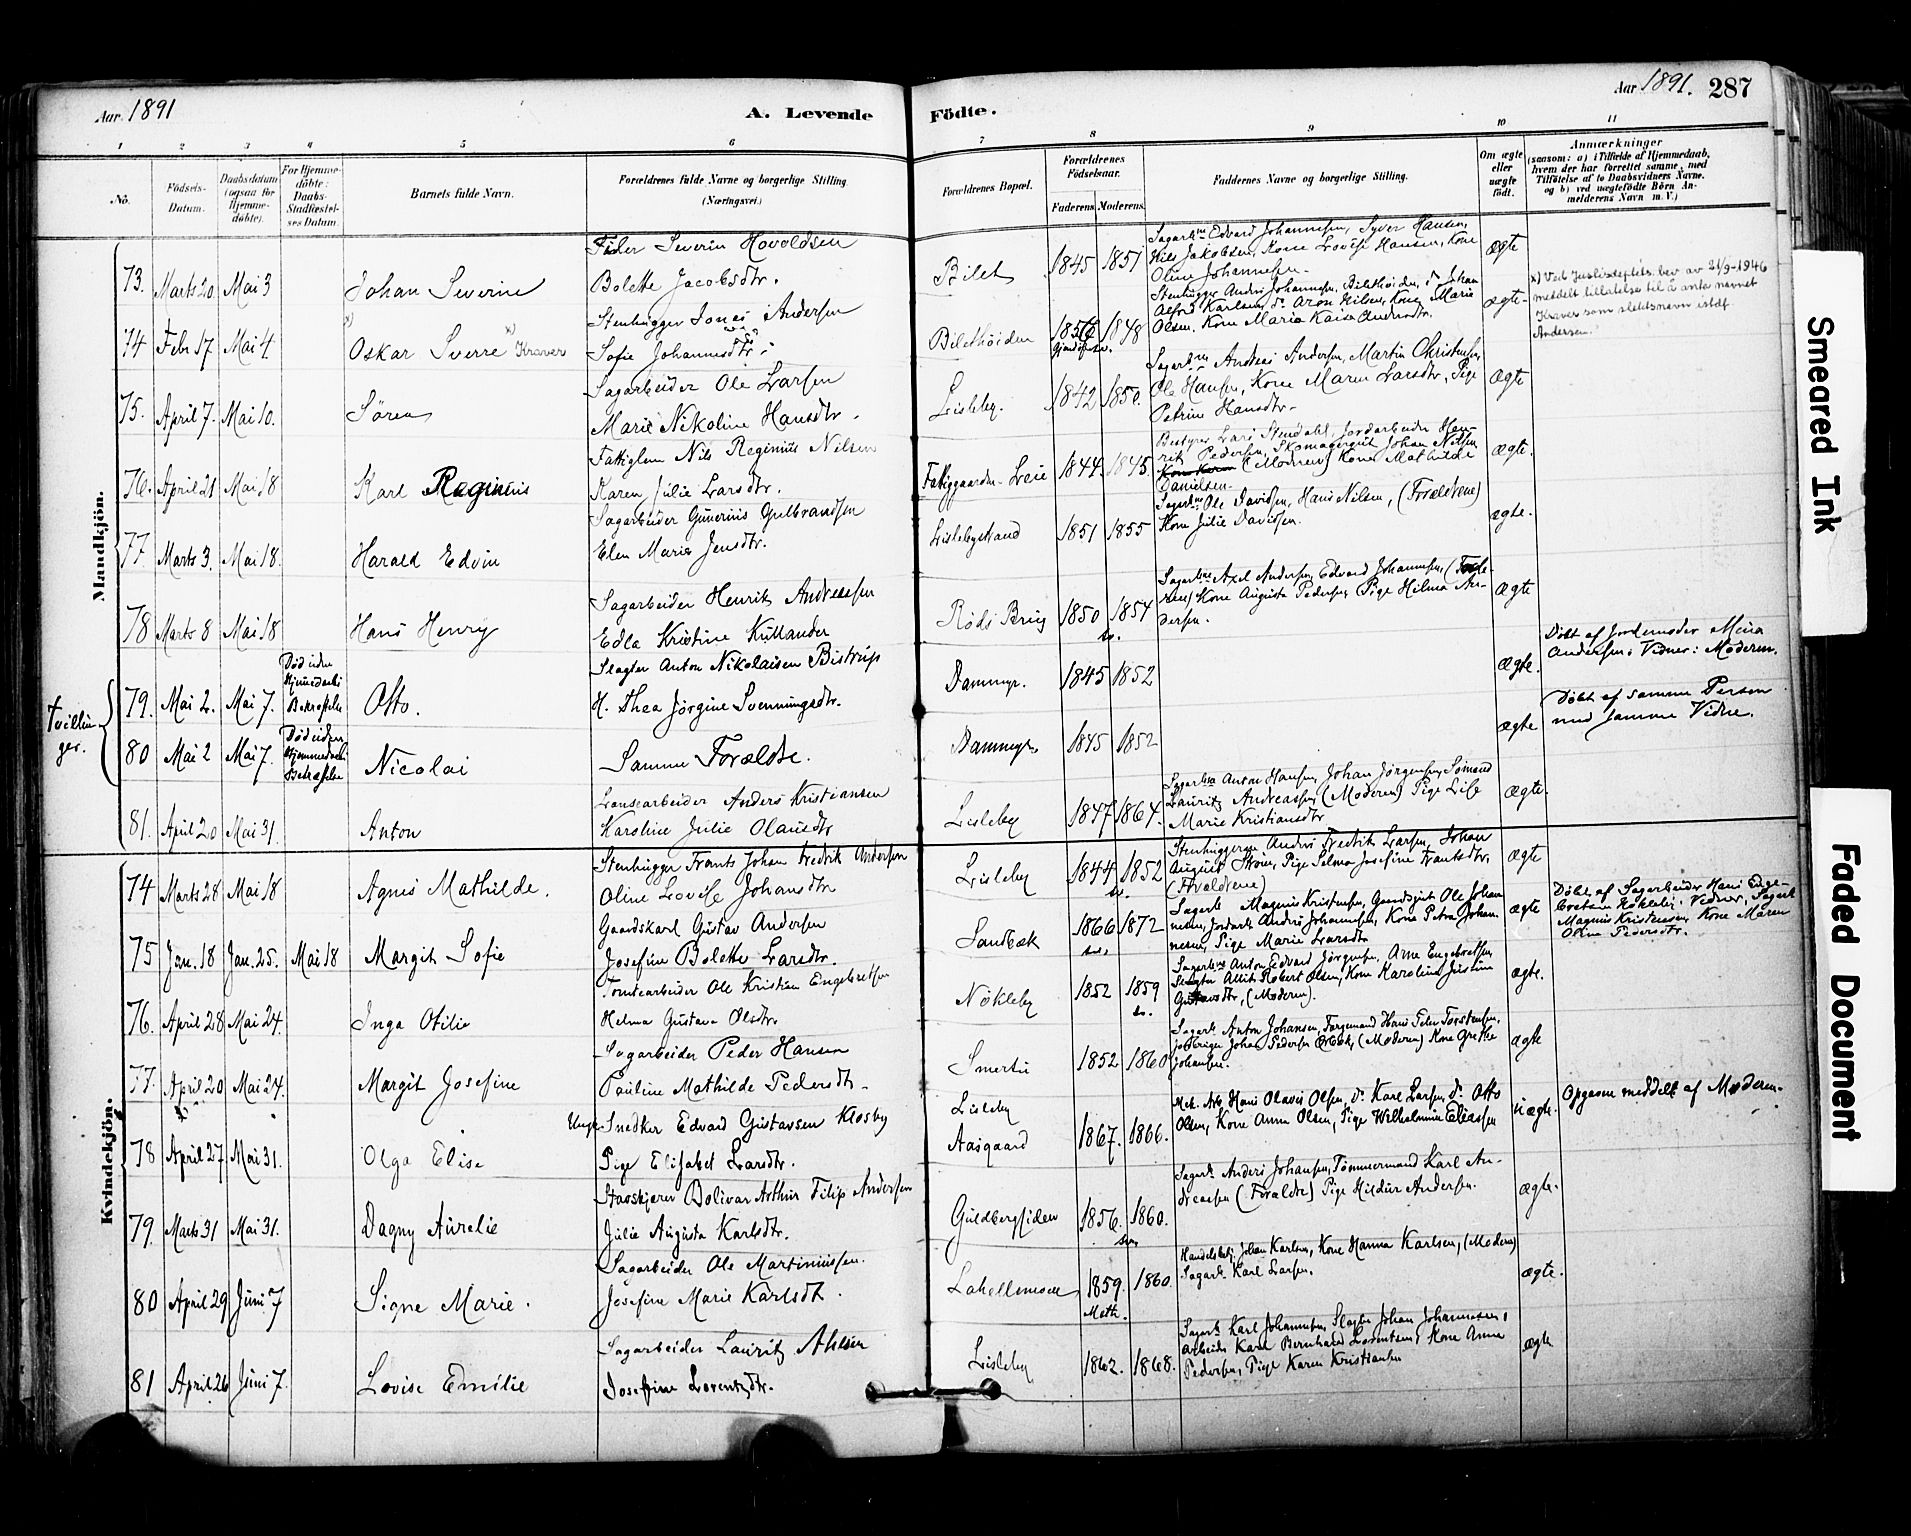 Aar 1891
A. Levende Födte.
Aar 1891. 287
1 2 3 4 5 6 7 8 9 10 11
No.
Födsels-Datum.
Daabsdatum (ogsaa for Hjemmedöbte).
For Hjemmedöbte: Daabs-Stadfæstelses Datum.
Barnets fulde Navn.
Forældrenes fulde Navne og borgerlige Stilling (Næringsvei.)
Forældrenes Bopæl.
Forældrenes Födselsaar.
Faderens. Moderens.
Faddernes Navne og borgerlige Stilling.
Om ægte eller uægte födt.
Anmærkninger
(saasom: a) i Tilfælde af Hjemmedaab,
hvem der har forrettet samme, med
Tilföielse af to Daabsvidners Navne,
og b) ved uægtefödte Börn An-
melderens Navn m. V.)
Mandkjön.
73. Marts 20 Mai 3
Johan Severin
Severin Hovoldsen
Bolette Jacobsdtr.
Bilet 1845 1851
Sagarb. Edvard Johannesen, Syver Hansen,
Nils Jakobsen, Kone Lovise Hansen, Kone
Oline Johannesen
ægte
74 Febr 17 Mai 4
x) Oskar Sverre x) Kraver
Stenhugger Jonas Andersen
Sofie Johannesdtr.
Bilethöiden 1856 1848
Stenhugger Anders Johannesen, Bilethöiden, do Johan
Alfred Karlsen, do Aron Nilsen, Kone Marie
Olsen, Kone Maria Kaisa
ægte
x) Ved Justisdeptets. bev av 21/9-1946
meddelt tillatelse til å anta navnet
Kraver som slektsnavn istdf.
Andersen.
75. April 7. Mai 10.
Sören
Sagarbeider Ole Larsen
Marie Nikoline Hansdtr.
Lisleby. 1842 1850.
Andreas Andersen, Martin Christensen,
Ole Hansen, Kone Maren Larsdtr, Pige
Petrine Hansdtr
ægte
76. April 21 Mai 18
Karl Reginius
Fattiglem Nils Reginius Nilsen
Karen Julie Larsdtr.
Fattiggaarden Leie 1844. 1845.
Bestyrer Lars Stendahl, Jordarbeider Hen-
rik Pedersen, Skomagergut Johan Nilsen
(Moderen) Kone Mathilde
Danielsen
ægte.
77 Marts 3. Mai 18.
Harald Edvin
Sagarbeider Gunerius Gulbrandsen
Elen Marie Jensdtr.
Lislebystrand 1851 1855
Ole Davidsen, Hans Nilsen, (Forældrene)
Kone Julie Davidsen.
ægte.
78 Marts 8 Mai 18
Hans Henry
Sagarbeider Henrik Andreasen
Edla Kristine Kullander
Röds Brug 1850 1854
Axel Andersen, Edvard Johannesen, (Foræld-
rene) Kone Augusta Pedersen, Pige Hilma An-
dersen.
ægte
Tvillin-
ger.
79. Mai 2. Mai 7.
Otto.
Slagter Anton Nikolaisen Bistrup
H. Thea Jörgine Svenningsdtr.
Dammyr. 1845 1852
ægte.
Döbt af Jordemoder Mina
Andersen: Vidner: Moderen.
80 Mai 2 Mai 7.
Nicolai
Samme Forældre.
Dammyr 1845 1852
ægte
Döbt af samme Person
med samme Vidne.
81. April 20 Mai 31.
Anton
Anders Kristiansen
Karoline Julie Olausdtr
Lisleby 1847 1864.
Anton Hansen, Johan Jörgensen, Sömand
Lauritz Andreassen, (Moderen) Pige Lise
Marie Kristiansdtr
ægte.
Kvindekjön.
74 Marts 28 Mai 18
Agnes Mathilde.
Stenhugger Frants Johan Fredrik Andersen
Oline Lovise Johansdtr
Lisleby 1844 1852
Stenhuggerne Anders Fredrik Larsen, Johan
August Ström, Pige Selma Josefine Frantsdtr,
(Forældrene)
ægte
75 Jan. 18 Jan. 25. Mai 18
Margit Sofie
Gaardskarl Gustav Andersen
Josefine Bolette Larsdtr.
Sandbæk 1866 1872
Sagarb Magnus Kristensen, Gaardsgut Ole Johan
nesen, Jordarb. Anders Johannesen, Kone Petra Johan
nesen, Pige Marie Larsdtr
ægte
Döbt af Sagarbeider Hans Enge-
bretsen Nökleby. Vidner, Sagarb
Magnus Kristensen, Kone Maren
Oline Pedersdtr.
76. April 28 Mai 24.
Inga Otilie
Tomtearbeider Ole Kristian Engebretsen
Helma Gustava Olsdtr
Nökleby 1852 1859
Anton Edvard Jörgensen, Arne Engebretsen,
Robert Olsen, Kone Karoline Justine
Gustavsdtr, (Moderen).
ægte.
77. April 20 Mai 24.
Margit Josefine
Sagarbeider Peder Hansen
Pauline Mathilde Pedersdtr
Smertu 1852 1860
Sagarb. Anton Johansen, Hans Peter Torstensen,
Johan Pedersen, (Moderen) Kone Grethe
Johansen.
ægte
78 April 27 Mai 31.
Olga Elise
Ungk. Snedker Edvard Gustavsen Klosby
Pige Elisabet Larsdtr.
Lisleby
Aasgaard 1867. 1866.
Mek. Arb. Hans Olavus Olsen, do Karl Larsen, do Otto
Olsen, Kone Anna Olsen, Pige Wilhelmine Eliassen
uægte.
Opgaven meddelt af Moderen.
79. Marts 31 Mai 31.
Dagny Aurelie
Bolivar Arthur Filip Andersen
Julie Augusta Karlsdtr.
Guldbergsiden 1856. 1860.
Sagarb. Anders Johansen, Tömmermand Karl An-
dreasen (Forældre) Pige Hildur Andersen.
ægte.
80 April 29 Juni 7
Signe Marie.
Sagarbeider Ole Martiniussen.
Josefine Marie Karlsdtr.
Lahellemoen 1859. 1860.
Meth.
Johan Karlsen, Kone Hanna Karlsen, (Moderen)
Sagarb. Karl Larsen.
ægte.
81 April 26 Juni 7.
Lovise Emilie
Sagarbeider Lauritz Ahlsen
Josefine Lorentzdtr.
Lisleby 1862. 1868.
Sagarb. Karl Johannesen, Slagter Johan Johannesen,
Arbeider Karl Bernhard Lorentsen, Kone Anne
Pedersen, Pige Karen Kristiansen
ægte
Smeared Ink
Faded Document